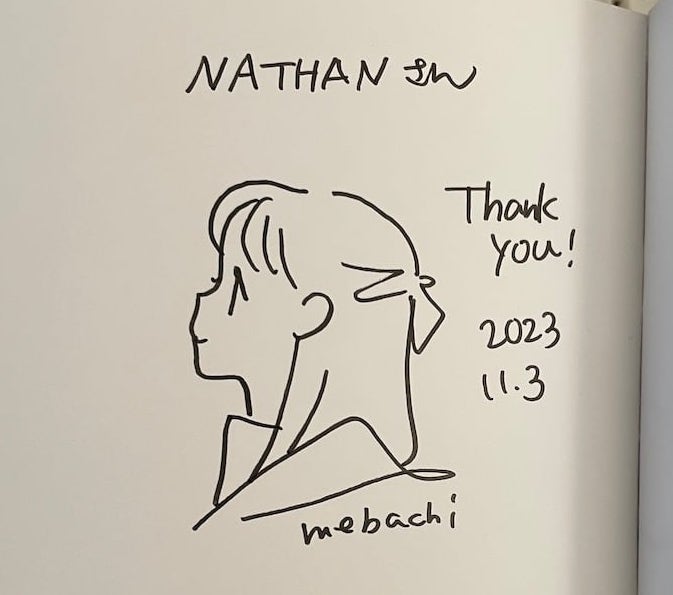 NATHAN さん
Thank
you!
2023
11.3
mebachi